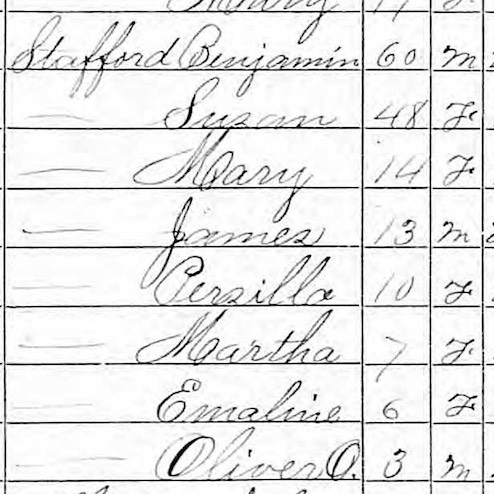 Mary 17 F
Stafford Benjamin 60 M
— Susan 48 F
— Mary 14 F
— James 13 M
— Persilla 10 F
— Martha 7 F
— Emaline 6 F
— Oliver O. 3 M